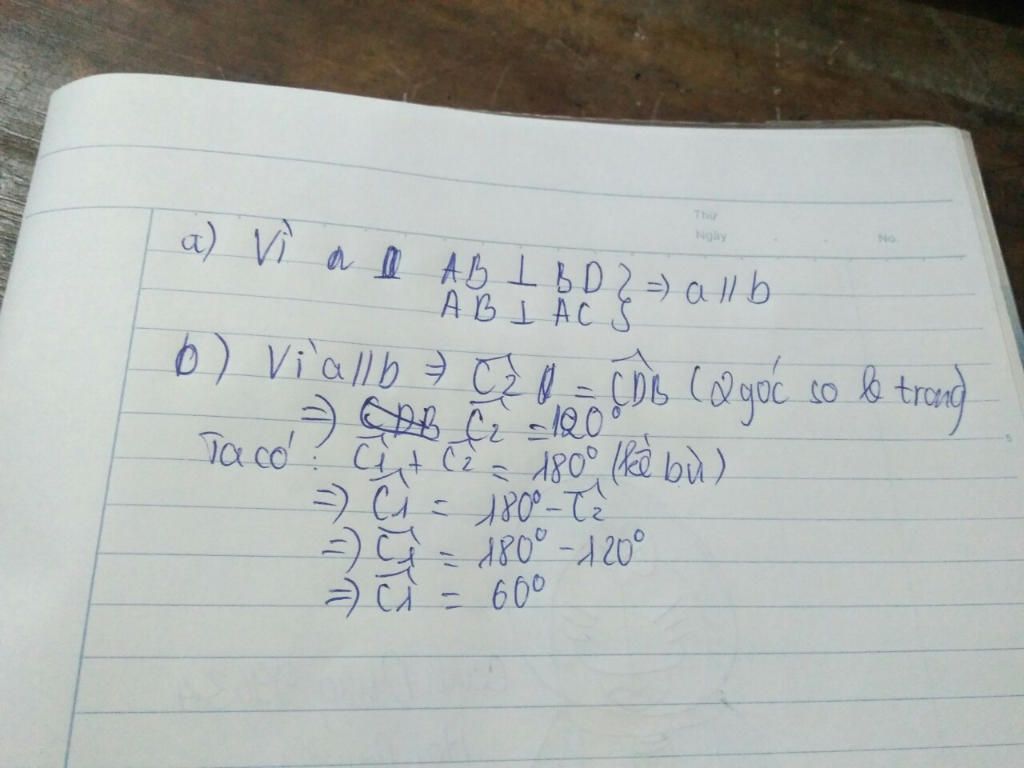 Thứ
Ngày
No.
a) Vì a AB ⊥ BD } => a // b
AB ⊥ AC
b) Vì a // b => Ĉ2 = CDB (2 góc so le trong)
=> Ĉ2 = 120°
Ta có: Ĉ1 + Ĉ2 = 180° (kề bù)
=> Ĉ1 = 180° - Ĉ2
=> Ĉ1 = 180° - 120°
=> Ĉ1 = 60°